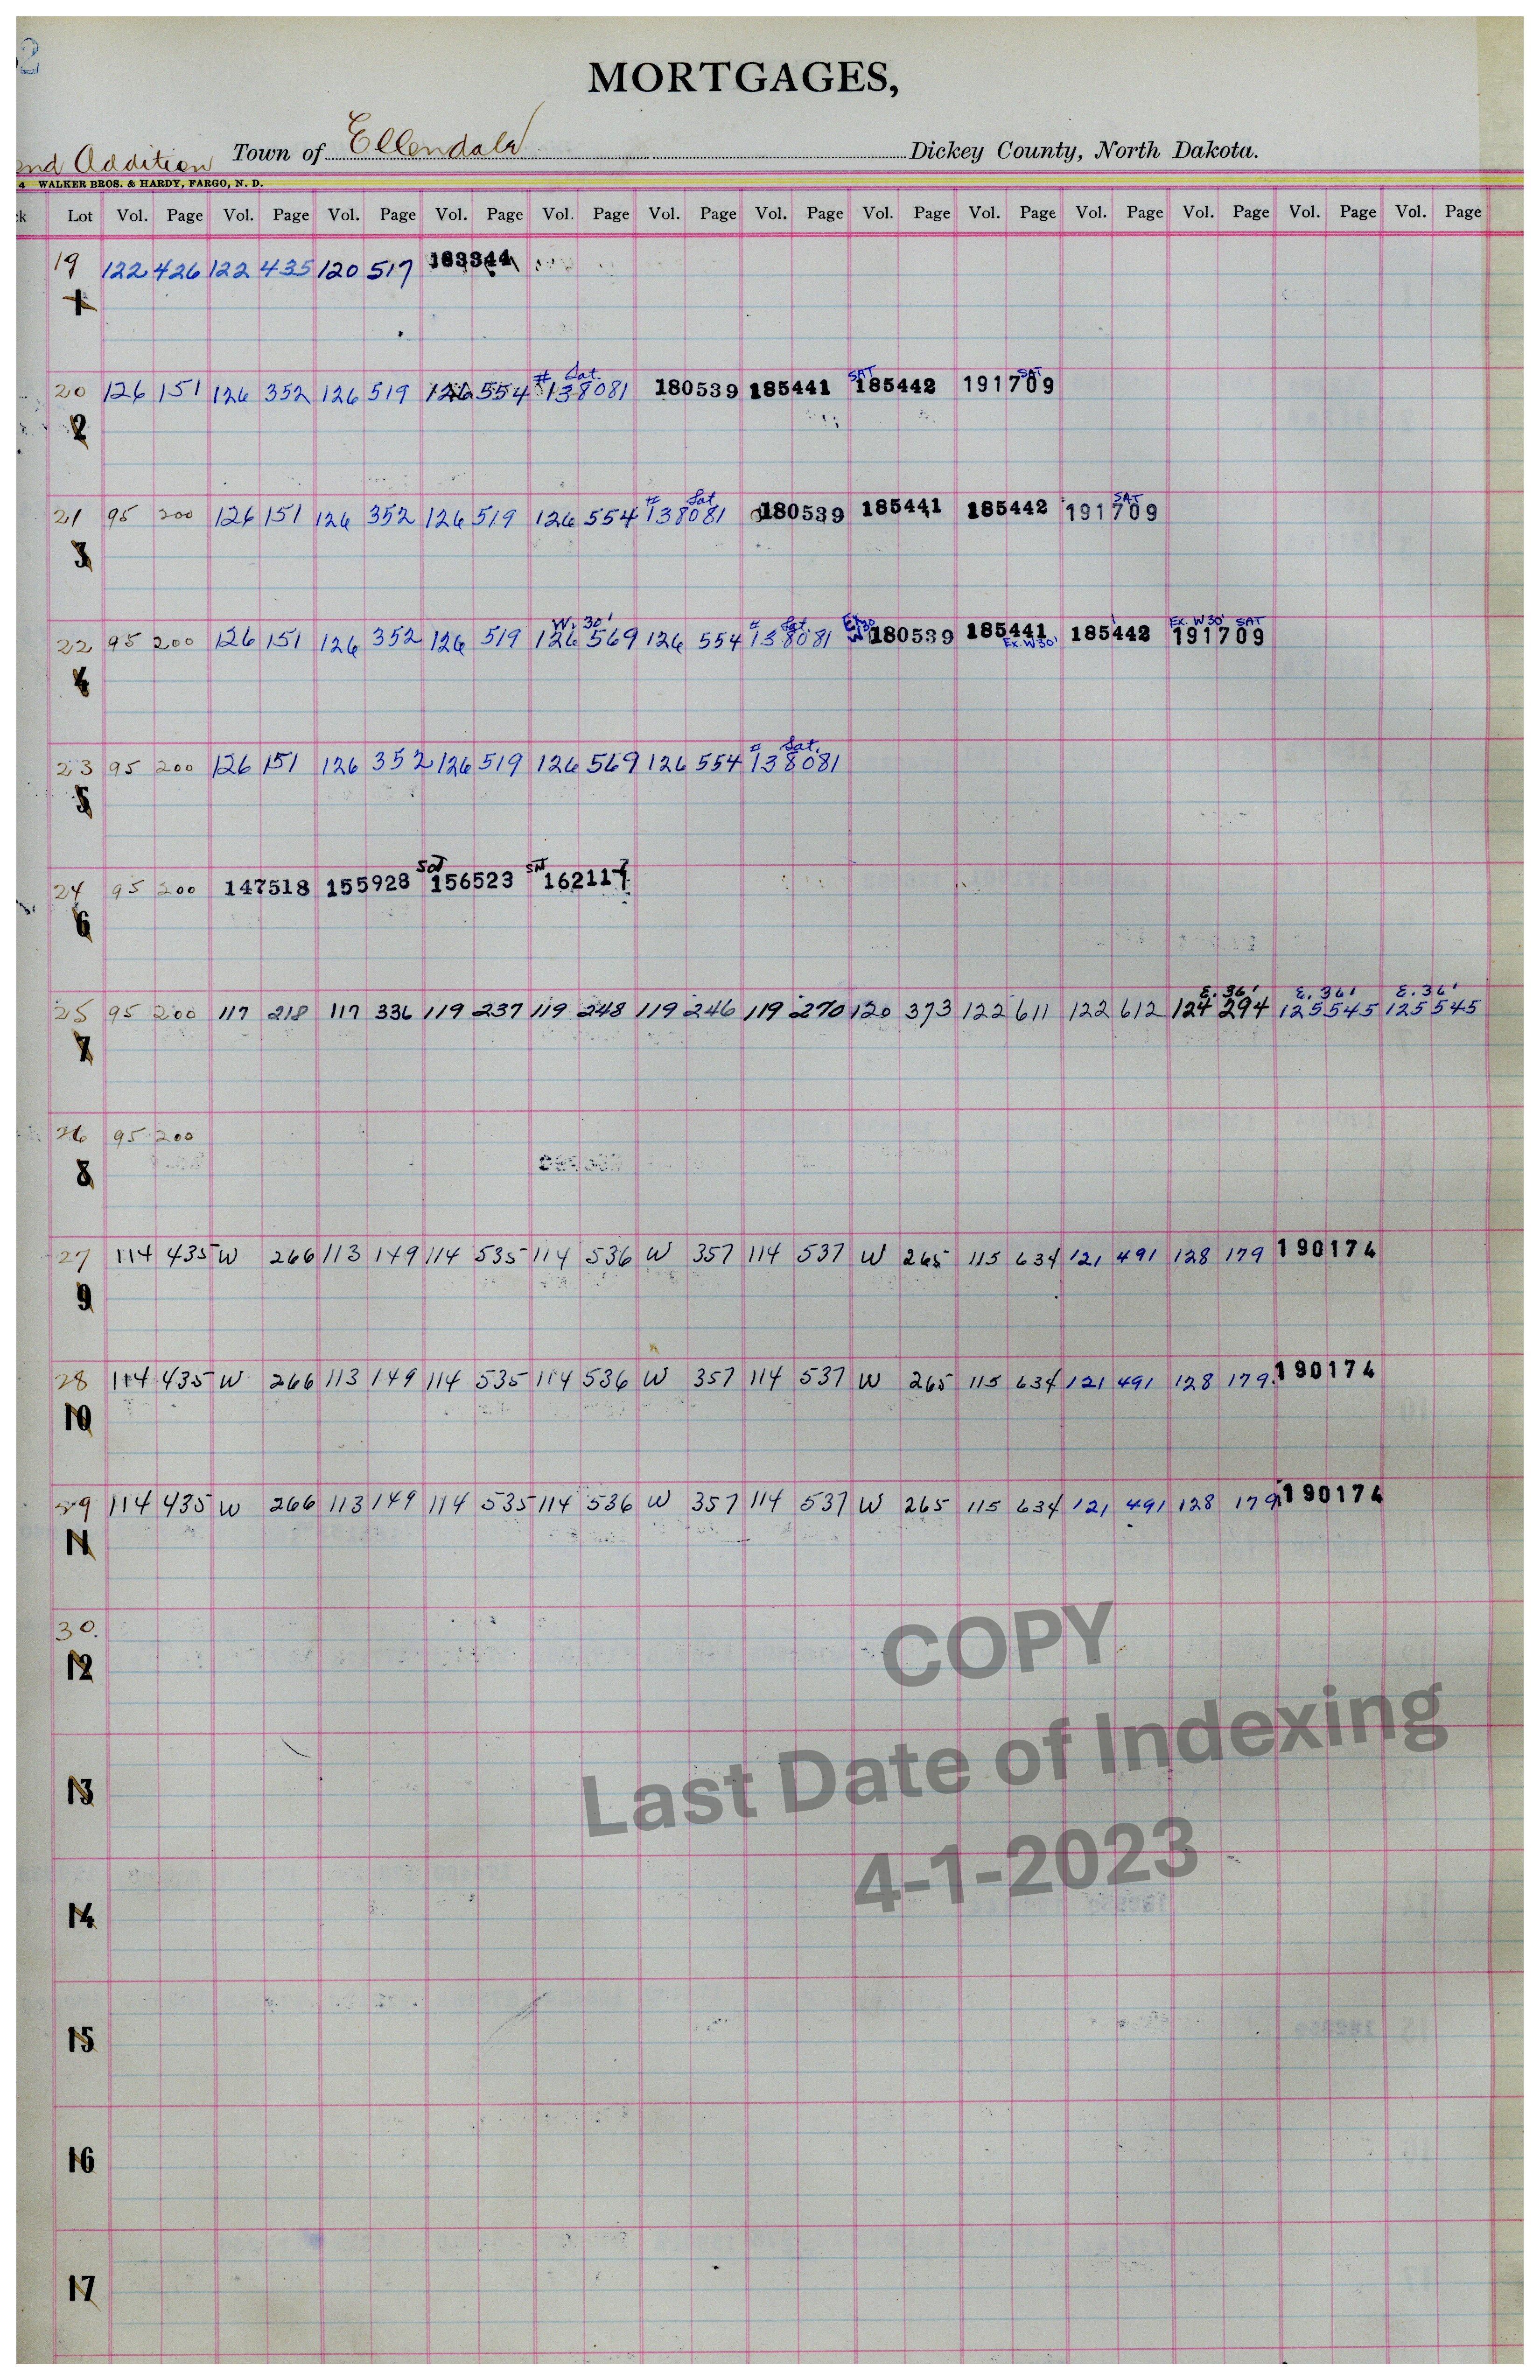 2
MORTGAGES,
nd Addition Town of Ellendale Dickey County, North Dakota.
4 WALKER BROS. & HARDY, FARGO, N. D.
k Lot Vol. Page Vol. Page Vol. Page Vol. Page Vol. Page Vol. Page Vol. Page Vol. Page Vol. Page Vol. Page Vol. Page Vol. Page Vol. Page
19 122 426 122 435 120 517 183344
1
# Sat. SAT SAT
20 126 151 126 352 126 519 126 554 138081 180539 185441 185442 191709
2
# Sat SAT
21 95 200 126 151 126 352 126 519 126 554 138081 180539 185441 185442 191709
3
W. 30' # Sat. Ex 30 Ex. W30' SAT
22 95 200 126 151 126 352 126 519 126 569 126 554 138081 W 180539 185441 185442 191709
Ex. W30'
4
# Sat.
23 95 200 126 151 126 352 126 519 126 569 126 554 138081
5
SAT SAT
24 95 200 147518 155928 156523 162117
6
E. 36' E. 36' E. 36'
25 95 200 117 218 117 336 119 237 119 248 119 246 119 270 120 373 122 611 122 612 124 294 125 545 125 545
7
26 95 200
8
27 114 435 W 266 113 149 114 535 114 536 W 357 114 537 W 265 115 634 121 491 128 179 190174
9
28 114 435 W 266 113 149 114 535 114 536 W 357 114 537 W 265 115 634 121 491 128 179 190174
10
29 114 435 W 266 113 149 114 535 114 536 W 357 114 537 W 265 115 634 121 491 128 179 190174
11
30.
12
13
14
15
16
17
COPY
Last Date of Indexing
4-1-2023